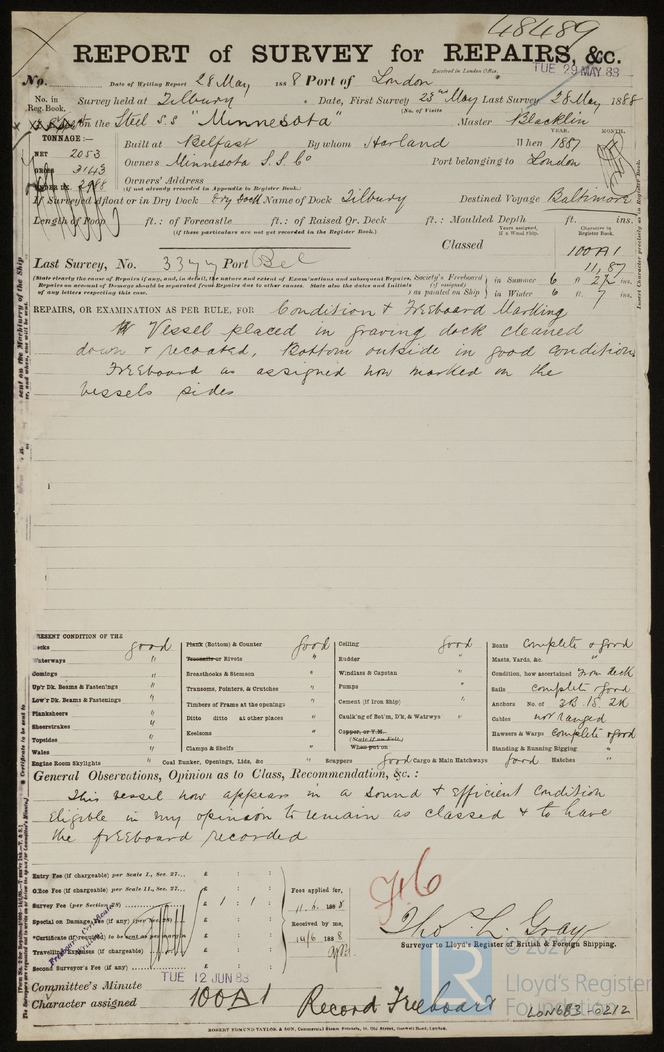 48489
REPORT of SURVEY for REPAIRS, &c.
Received in London Office,
TUE 29 MAY 88
No. Date of Writing Report 28 May 1888 Port of London
No. in Reg. Book. Survey held at Tilbury Date, First Survey 23rd May Last Survey 28 May 1888
(No. of Visits
on the Steel S.S "Minnesota" Master Blacklin
TONNAGE :— YEAR. MONTH.
NET 2053 Built at Belfast By whom Harland When 1887
GROSS 3143 Owners Minnesota S.S. Co Port belonging to London
UNDER DK. 2988 Owners' Address
(If not already recorded in Appendix to Register Book.)
If Surveyed Afloat or in Dry Dock Dry Dock Name of Dock Tilbury Destined Voyage Baltimore
Length of Poop ft.: of Forecastle ft.: of Raised Qr. Deck ft.: Moulded Depth ft. ins.
(If these particulars are not yet recorded in the Register Book.) Years assigned, if a Wood Ship. Character in Register Book.
Classed 100A1
11,87
Last Survey, No. 3377 Port Bel
(State clearly the cause of Repairs if any, and, in detail, the nature and extent of Examinations and subsequent Repairs. Society's Freeboard in Summer 6 ft 2½ ins.
Repairs on account of Damage should be separated from Repairs due to other causes. State also the dates and Initials (if assigned)
of any letters respecting this case. as painted on Ship in Winter 6 ft. 7 ins.
REPAIRS, OR EXAMINATION AS PER RULE, FOR Condition & Freeboard Marking
Vessel placed in graving dock cleaned
down & recoated, Bottom outside in good condition
Freeboard as assigned now marked on the
vessels sides
PRESENT CONDITION OF THE
Decks good Plank (Bottom) & Counter good Ceiling good Boats complete & good
Waterways " Treenails or Rivets " Rudder " Masts, Yards, &c. "
Comings " Breasthooks & Stemson " Windlass & Capstan " Condition, how ascertained From deck
Up'r Dk. Beams & Fastenings " Transoms, Pointers, & Crutches " Pumps " Sails complete & good
Low'r Dk. Beams & Fastenings " Timbers of Frame at the openings " Cement (if Iron Ship) " Anchors No. of 3B. 1S. 2K
Planksheers " Ditto ditto at other places " Caulk'ng of Bot'm, D'k, & Watrwys " Cables not ranged
Sheerstrakes " Keelsons " Copper, or Y.M. Hawsers & Warps complete & good
Topsides " (State if on Felt.) Standing & Running Rigging "
Wales " Clamps & Shelfs " When put on
Engine Room Skylights " Coal Bunker, Openings, Lids, &c " Scuppers good Cargo & Main Hatchways good Hatches "
General Observations, Opinion as to Class, Recommendation, &c. :
This vessel now appears in a sound & efficient condition
eligible in my opinion to remain as classed & to have
the freeboard recorded
Entry Fee (if chargeable) per Scale I., Sec. 27... £ : :
Office Fee (if chargeable) per Scale II., Sec. 27... £ : :
Survey Fee (per Section 28) £ 1 : 1 :
Special or Damage Fee (if any) (per Sec. 28) £ : :
*Certificate (if required) to be sent as per margin £ : :
Travelling Expenses (if chargeable) £ : :
Second Surveyor's Fee (if any) £ : :
Fees applied for,
11.6. 1888
Received by me,
14/6 1888
F.6
Tho. L. Gray
Surveyor to Lloyd's Register of British & Foreign Shipping.
Committee's Minute TUE 12 JUN 88
Character assigned 100A1 Record Freeboard
© 2021
LR
Lloyd's Register
Foundation
LON683-0212
ROBERT EDMUND TAYLOR & SON, Commercial Steam Printers, 19, Old Street, Goswell Road, London.